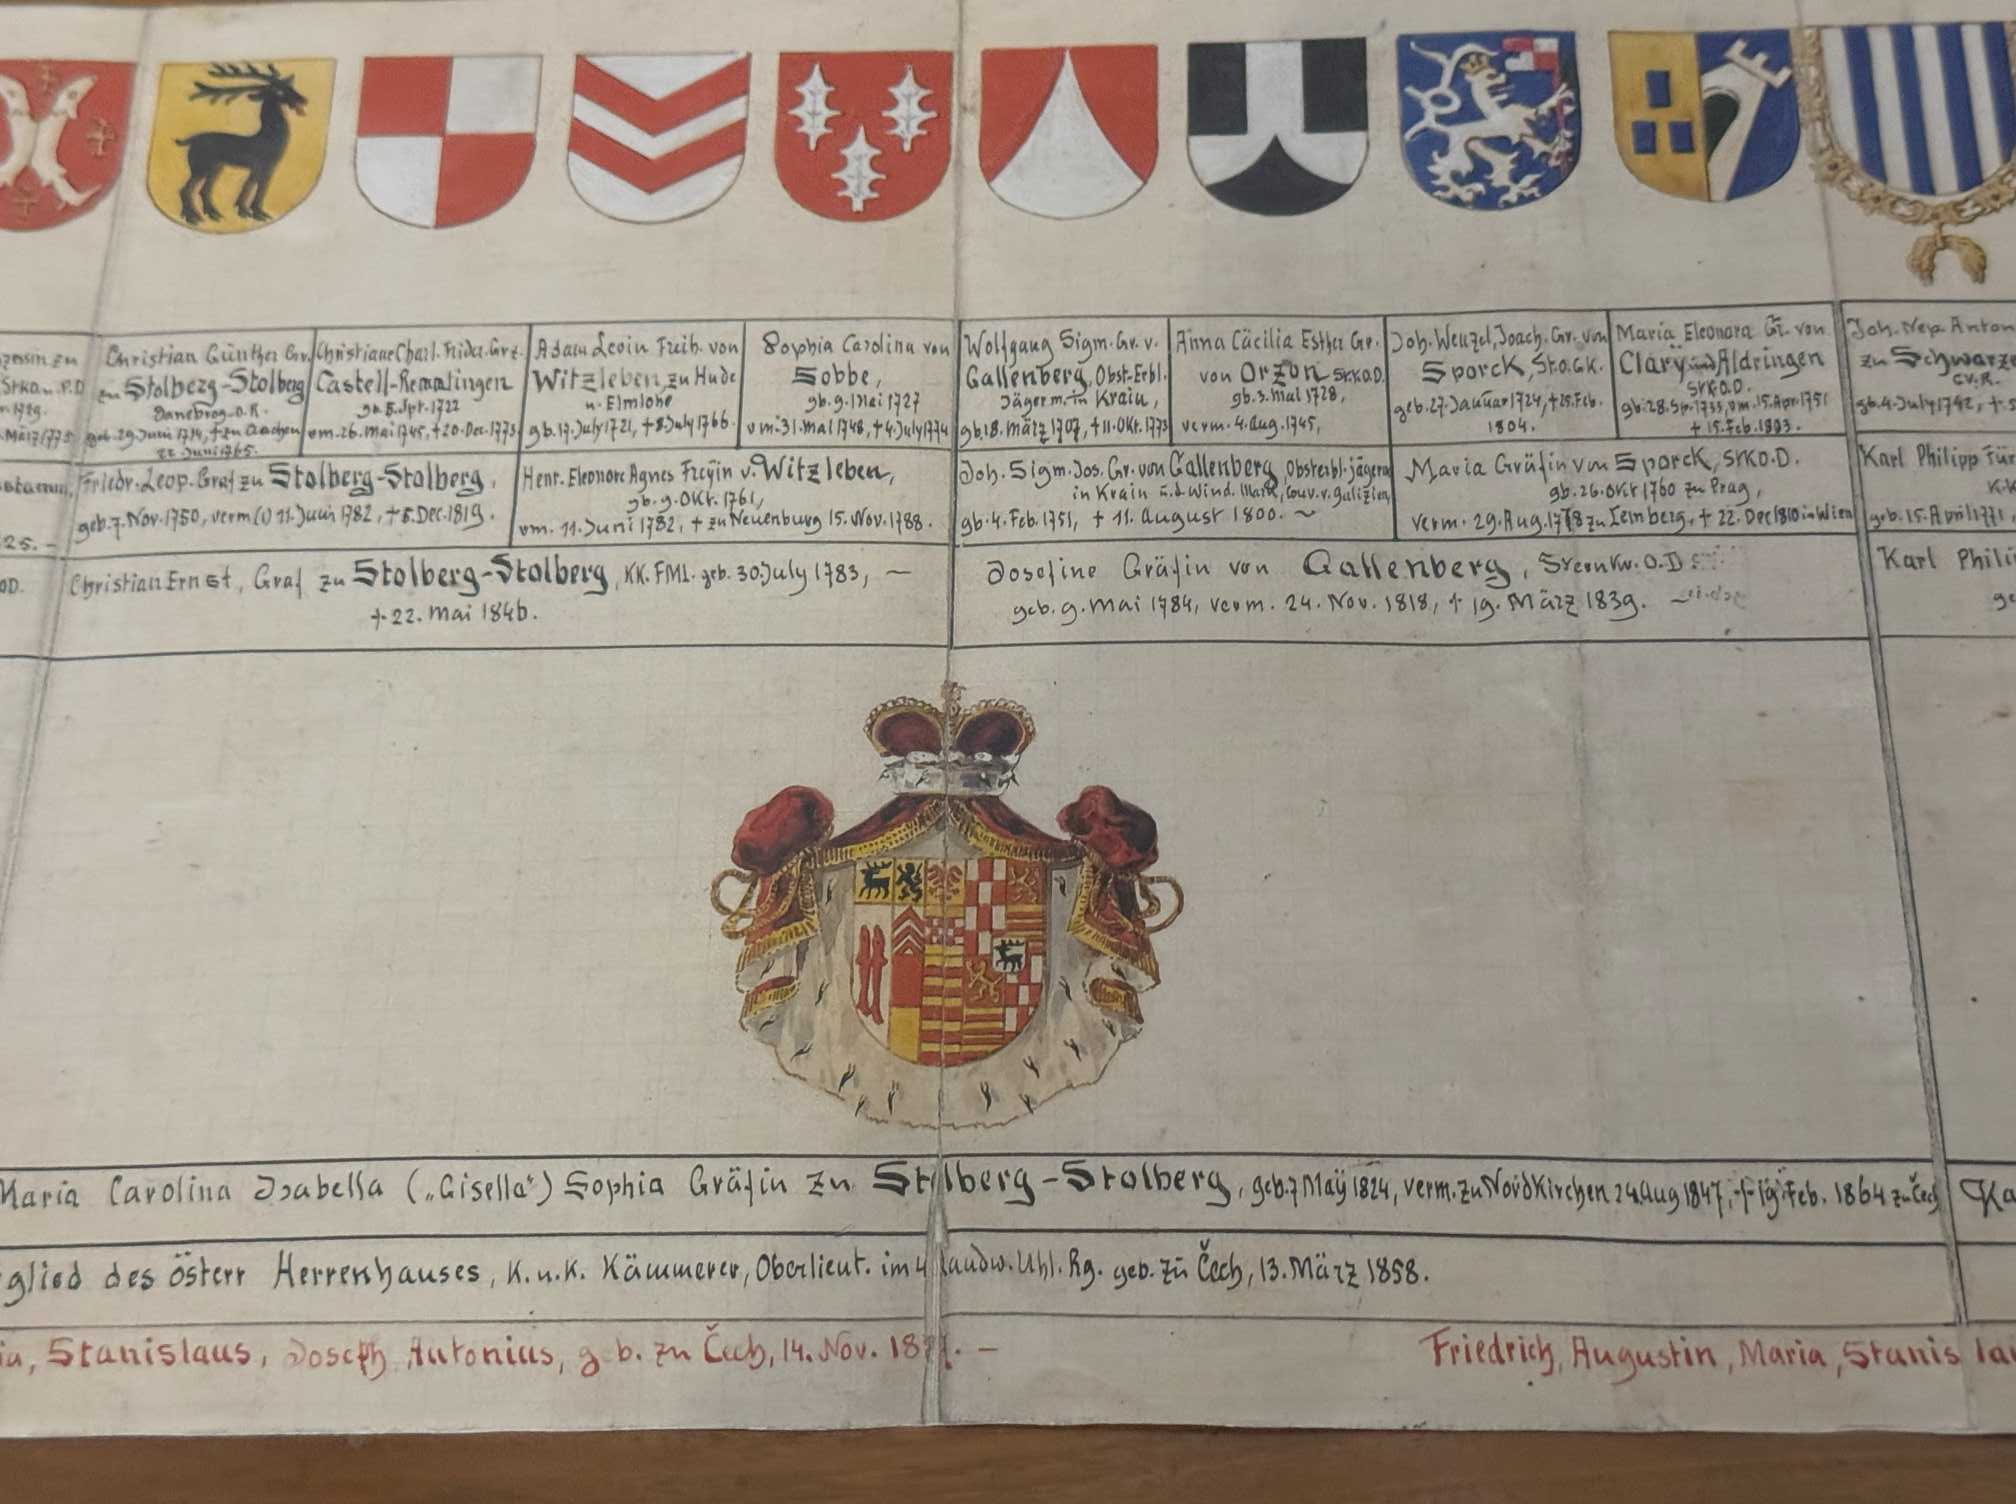 Christian Günther Gr.
zu Stolberg-Stolberg
Danebrog-O.R.
geb. 29. Juni 1714, † zu Aachen
22. Juni 1765.
Christiane Charl. Frider. Gr. z.
Castell-Remmlingen
gb. 5. Spt. 1722
vm. 26. Mai 1745, † 20. Dec. 1773
Adam Levin Freih. von
Witzleben, zu Hude
u. Elmlohe
gb. 17. July 1721, † 8. July 1766.
Sophia Carolina von
Sobbe,
gb. 9. Mai 1727
vm. 31. Mai 1748, † 4. July 1774
Wolfgang Sigm. Gr. v.
Gallenberg, Obst.-Erbl.
Jägerm. in Krain,
gb. 18. März 1707, † 11. Okt. 1773
Anna Cäcilia Esther Gr.
von Orzon SrKOD.
gb. 3. Mai 1728,
verm. 4. Aug. 1745,
Joh. Wenzel, Joach. Gr. von
Sporck, St.O.G.K.
geb. 27. Januar 1724, † 25. Feb.
1804.
Maria Eleonora Gr. von
Clary und Aldringen
SrK.O.D.
gb. 28. Sp. 1733, vm. 15. Apr. 1751
† 15. Feb. 1803.
Joh. Nep. Anton
zu Schwarze
gb. 4. July 1742, †
Friedr. Leop. Graf zu Stolberg-Stolberg,
geb. 7. Nov. 1750, verm (1) 11. Juni 1782, † 5. Dec. 1819.
Henr. Eleonore Agnes Freÿin v. Witzleben,
gb. 9. Okt. 1761,
vm. 11. Juni 1782, † zu Neuenburg 15. Nov. 1788.
Joh. Sigm. Jos. Gr. von Gallenberg, Obsterbl-jägerm
in Krain u. d. Wind. Mark, Gouv. v. Galizien,
gb. 4. Feb. 1751, † 11. August 1800. ~
Maria Gräfin von Sporck, SrKO.D.
gb. 26. Okt 1760 zu Prag,
verm. 29. Aug. 1778 zu Lemberg, † 22. Dec 1810 in Wien
Karl Philipp Für
K.K.
geb. 15. April 1771,
25. –
Christian Ernst, Graf zu Stolberg-Stolberg, KK. FML. geb. 30. July 1783, —
† 22. Mai 1846.
Josefine Gräfin von Gallenberg, Sternkr. O.D
geb. 9. Mai 1784, verm. 24. Nov. 1818, † 19. März 1839. –
Karl Phili
ge
Maria Carolina Isabella („Gisella“) Sophia Gräfin zu Stolberg-Stolberg, geb. 7 Maÿ 1824, verm. zu Nordkirchen 24. Aug 1847, † 19. Feb. 1864 zu Čech
Ka
glied des österr Herrenhauses, K. u. K. Kämmerer, Oberlieut. im 4 Landw. Uhl. Rg. geb. zu Čech, 13. März 1858.
ia, Stanislaus, Joseph Antonius, geb. zu Čech, 14. Nov. –
Friedrich, Augustin, Maria, Stanislau